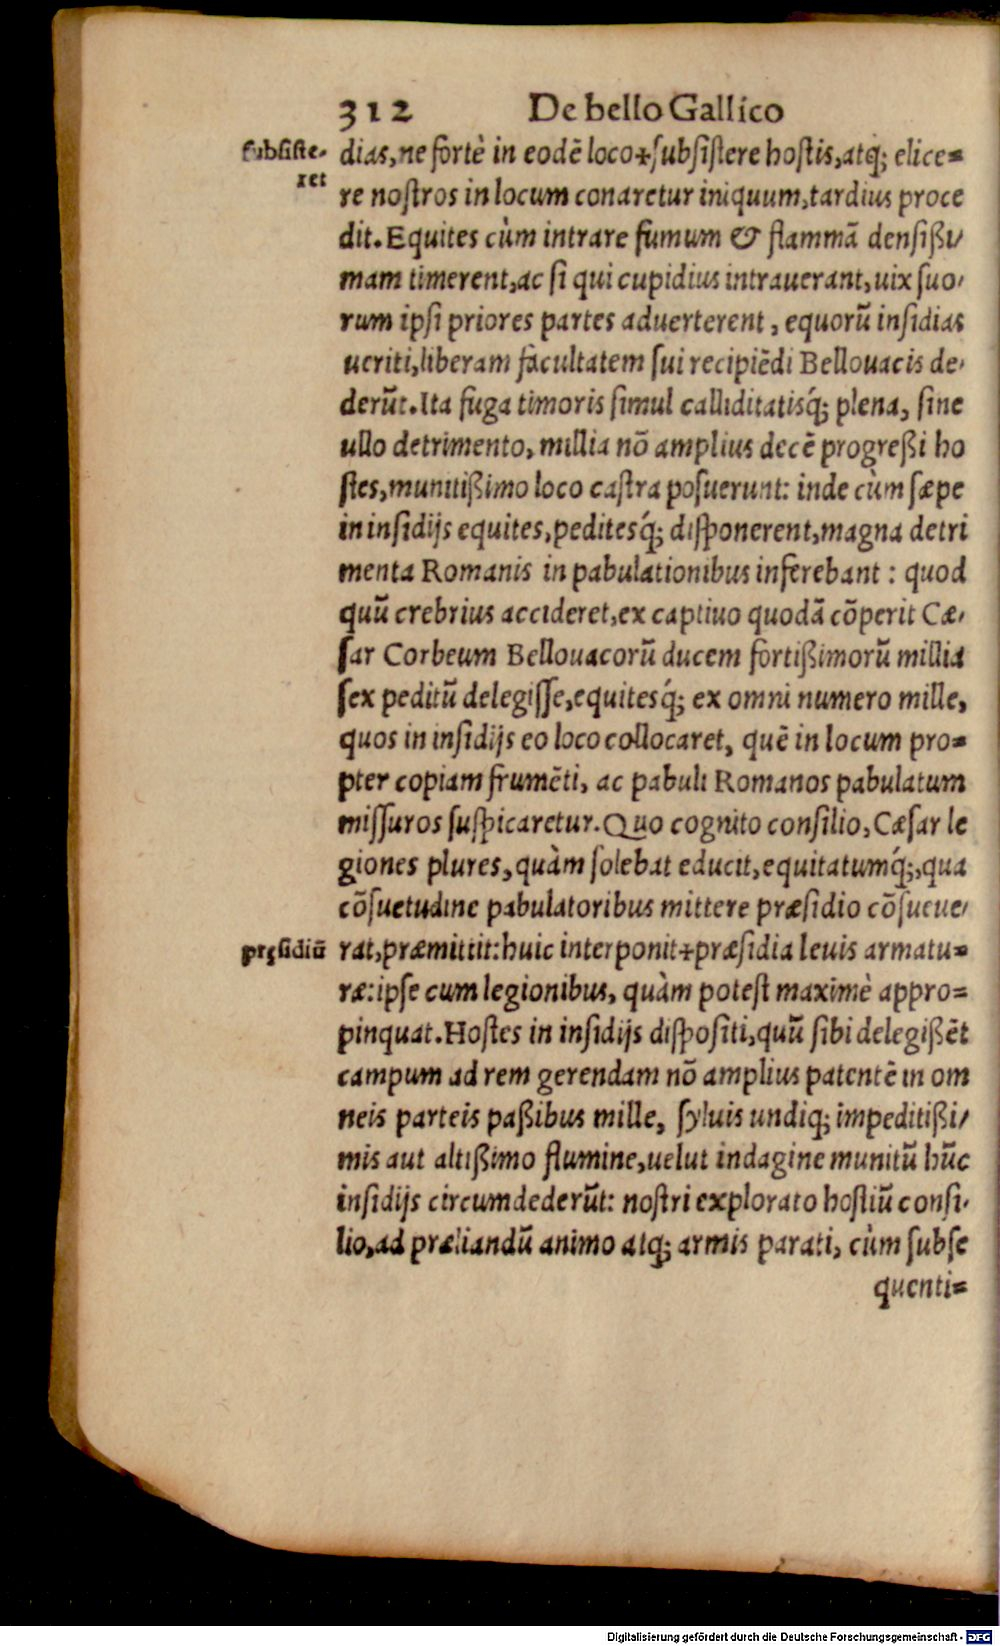 312 De bello Gallico
subsiste-
ret
dias, ne fortè in eodē loco+subsistere hostis, atq; elice=
re nostros in locum conaretur iniquum, tardius proce
dit. Equites cùm intrare fumum & flammā densißi/
mam timerent, ac si qui cupidius intrauerant, uix suo/
rum ipsi priores partes aduerterent, equorū insidias
ueriti, liberam facultatem sui recipiēdi Bellouacis de/
derūt. Ita fuga timoris simul calliditatisq́; plena, sine
ullo detrimento, millia nō amplius decē progreßi ho
stes, munitißimo loco castra posuerunt: inde cùm sæpe
in insidijs equites, peditesq́; disponerent, magna detri
menta Romanis in pabulationibus inferebant: quod
quū crebrius accideret, ex captiuo quodā cōperit Cæ/
sar Corbeum Bellouacorū ducem fortißimorū millia
sex peditū delegisse, equitesq́; ex omni numero mille,
quos in insidijs eo loco collocaret, quē in locum pro=
pter copiam frumēti, ac pabuli Romanos pabulatum
missuros suspicaretur. Quo cognito consilio, Cæsar le
giones plures, quàm solebat educit, equitatumq́;, qua
cōsuetudine pabulatoribus mittere præsidio cōsueue/
pręsidiū
rat, præmittit: huic interponit+præsidia leuis armatu=
ræ: ipse cum legionibus, quàm potest maximè appro=
pinquat. Hostes in insidijs dispositi, quū sibi delegißēt
campum ad rem gerendam nō amplius patentē in om
neis parteis paßibus mille, syluis undiq; impeditißi/
mis aut altißimo flumine, uelut indagine munitū hūc
insidijs circumdederūt: nostri explorato hostiū consi/
lio, ad præliandū animo atq; armis parati, cùm subse
quenti=
Digitalisierung gefördert durch die Deutsche Forschungsgemeinschaft - DFG